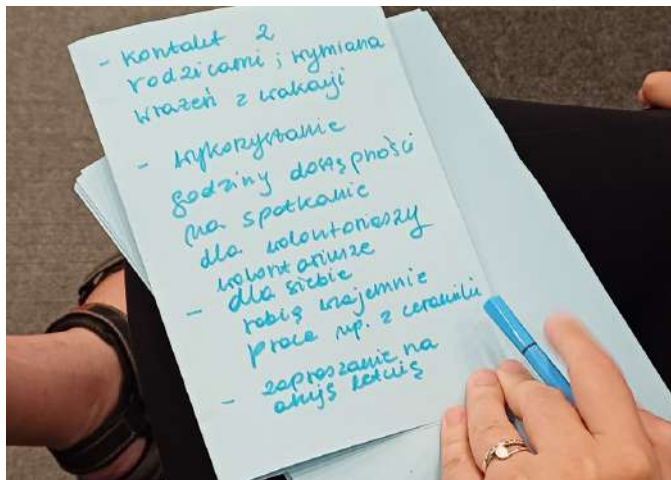 - kontakt z
rodzicami ; wymiana
wrażeń z wakacji
- wykorzystanie
godziny dostępności
na spotkanie
dla wolontariuszy
wolontariusze
- dla siebie
robią wzajemnie
prace np. z ceramiki
- zapraszanie na